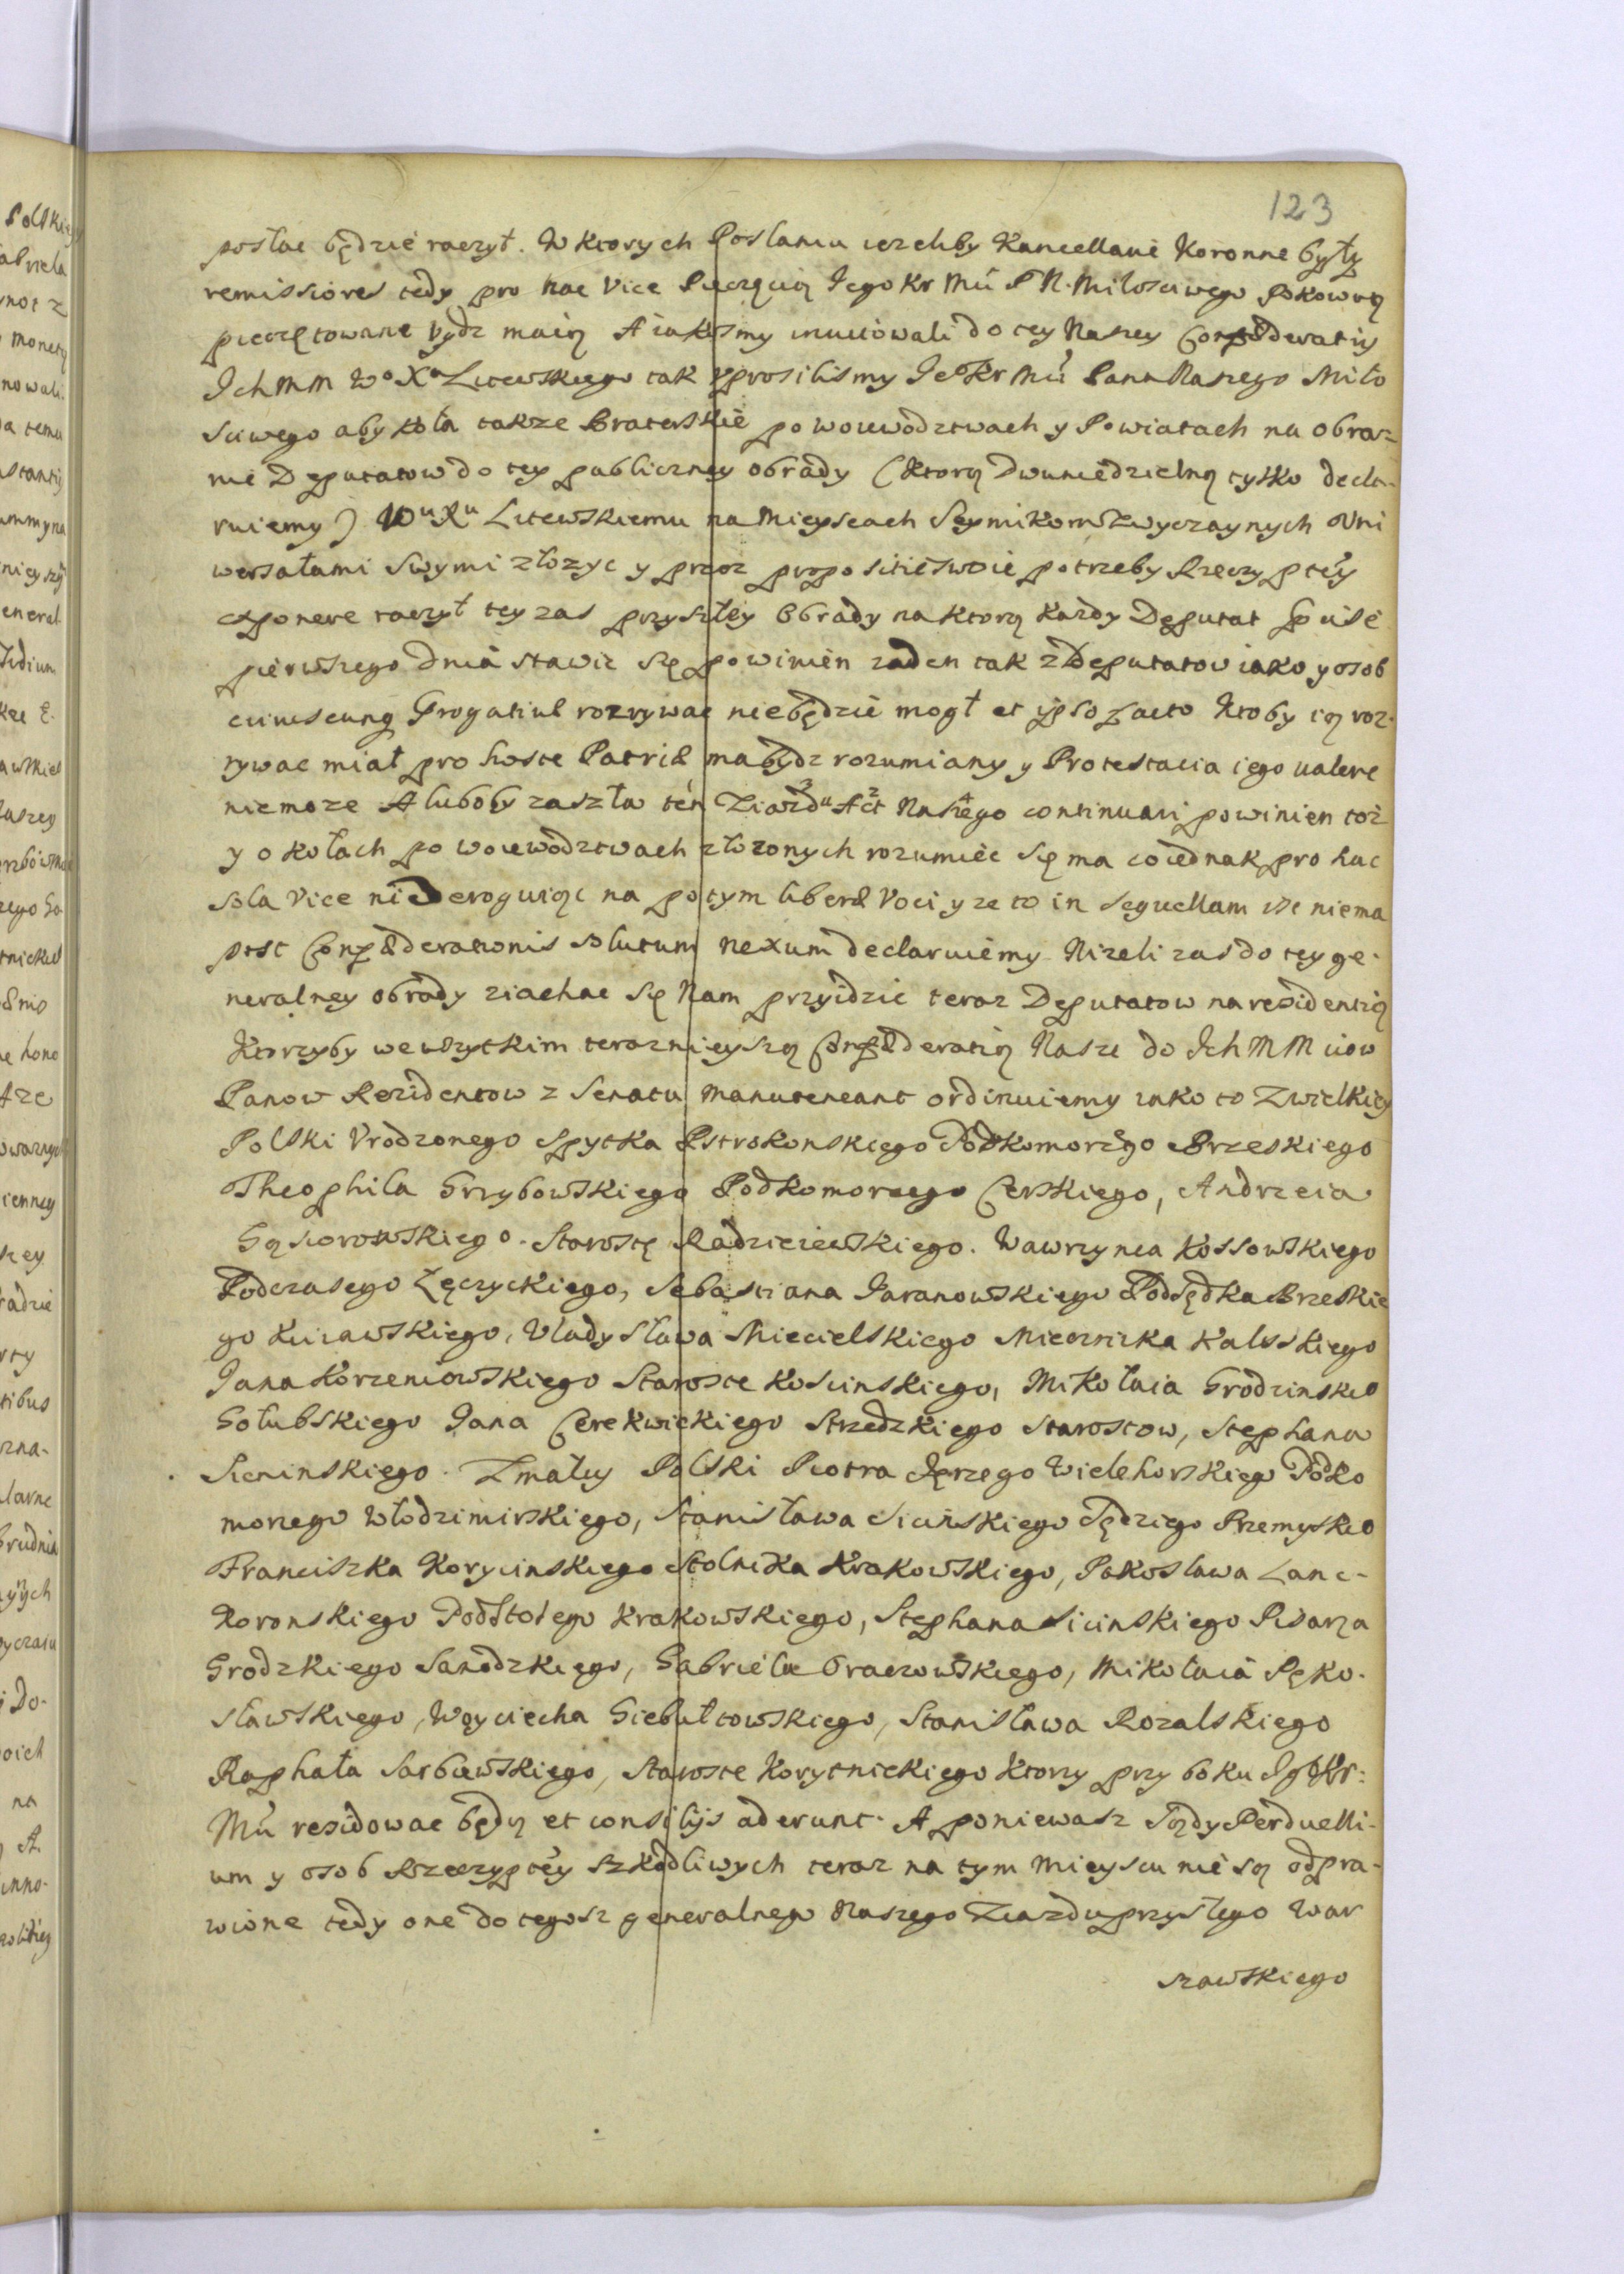 123
posłac będzie raczył. W ktorych Posłaniu iezeliby Kancellarie Koronne były
remissiores tedy pro hac vice Pieczęcią Jego Kr Mci P N. Miłosciwego Pokoiową
pieczętowane bydz maią A iakosmy inuitowali do tey Naszey Confœderatiy
Ich MM Wo Xa Litewskiego tak yprosilismy Jeo Kr Mci Pana Naszego Miło
sciwego aby koła takze Braterskie po woiewodztwach y Powiatach na obra=
nie Deputatow do tey publiczney obrady (ktorą dwuniedzielną tylko decla-
ruiemy) Wu Xu Litewskiemu na Mieyscach Seymikom zwyczaynych Vni
wersałami swymi złozyc y przez propositie swoie potrzeby Rzeczyptey
exponere raczył tey zas przyszłey Obrady na ktorą kazdy Deputat
pierwszego dnia stawic się powinien zaden tak z Deputatow iako y osob
cuiuscunq Progatiuæ rozrywac niebędzie mogł et ipso facto Ktoby ią roz-
rywac miał pro hoste Patriæ ma bydz rozumiany y Protestacia iego ualere
niemoze A luboby zaszła ten Ziazdu Act Naszego continuari powinien toz
y o kołach po woiewodztwach złozonych rozumiec się ma co iednak pro hac
sola vice nie Deroguiąc na potym liberæ Voci y ze to in sequellam isc niema
post Confœderationis solutum nexum declaruiemy Nizeli zas do tey ge-
neralney obrady ziachac się Nam przyidzie teraz Deputatow na residentią
Ktorzyby we wszytkim teraznieyszą Confœderatią Nasze do Ich MM ciow
Panow Rezidentow z Senatu manuteneant ordinuiemy iako to Zwielkiey
Polski Vrodzonego Spytka Pstrokonskiego Podkomorzego Brzeskiego
Theophila Grzybowskiego Podkomorzego Czerskiego, Andrzeia
Gąsiorowskiego Starostę Radzieiewskiego. Wawrzynca Kossowskiego
Podczasego Łęczyckiego, Sebastiana Jaranowskiego Podsędka Brzeskie
go Kuiawskiego, Vladysława Mieciełskiego Miecznika Kalisskiego
Jana Korzeniowskiego Staroste Koscinskiego, Mikołaia Grodzinskieo
Gołubskiego Jana Cerekwickiego Strzedzkiego Starostow, Stephana
Sieninskiego. Zmałey Polski Piotra Jerzego Wielehorskiego Podko
morzego Włodzimirskiego, Stanisława Sicinskiego Sędziego Przemyskieo
Franciszka Korycinskiego Stolnika Krakowskiego, Pakosława Lanc-
koronskiego Podstołego Krakowskiego, Stephana Sicinskiego Pisarza
Grodzkiego Sanodzkiego, Gabriela Graczowskiego, Mikołaia Sęko-
sławskiego, Woyciecha Giebułtowskiego, Stanisława Rozalskiego
Raphała Sarbiewskiego, Staroste Korytnickiego ktorzy przy boku Jgo Kr:
Mci residowac będą et consilijs aderunt. A poniewasz Sądy Perduelli-
um y osob Rzeczyptey szkodliwych teraz na tym mieyscu nie są odpra-
wione tedy one do tegosz generalnego Naszego Ziazdu przyszłego War
szawskiego